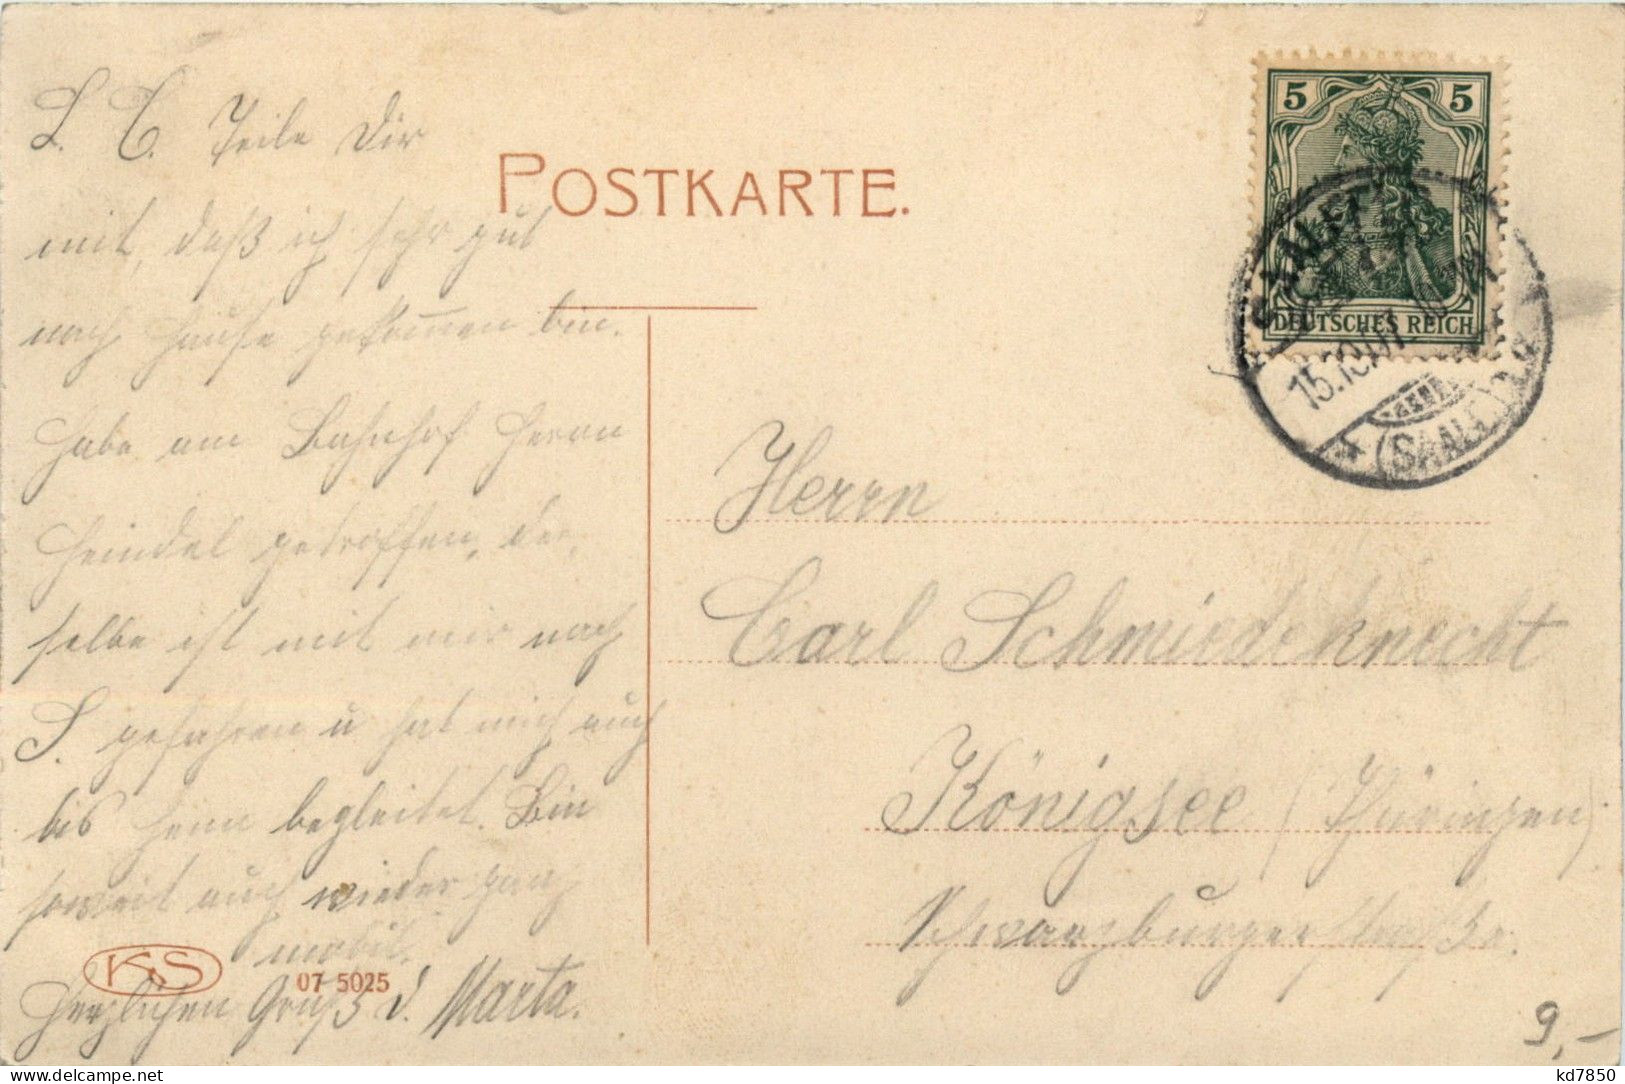 L. C. Teile Dir
mit, daß ich sehr gut
nach Hause gekommen bin.
Habe am Bahnhof Herrn
Heindel getroffen, der-
selbe ist mit mir nach
S. gefahren u hat mich auch
bis heim begleitet. Bin
soweit auch wieder ganz
mobil.
Herzlichen Gruß d. Marta.
KS
07 5025
POSTKARTE.
5 5
DEUTSCHES REICH
SAALFELD
15.10.07
(SAALE)
Herrn
Carl Schmiedeknecht
Königsee (Thüringen)
Schwarzburgerstraße.
9,-
kd7850